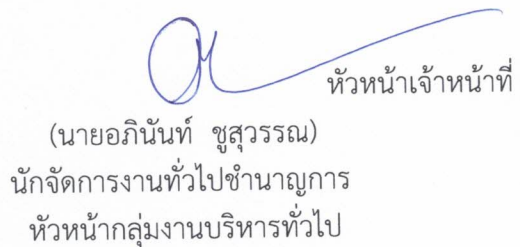 หัวหน้าเจ้าหน้าที่
(นายอภินันท์ ชูสุวรรณ)
นักจัดการงานทั่วไปชำนาญการ
หัวหน้ากลุ่มงานบริหารทั่วไป